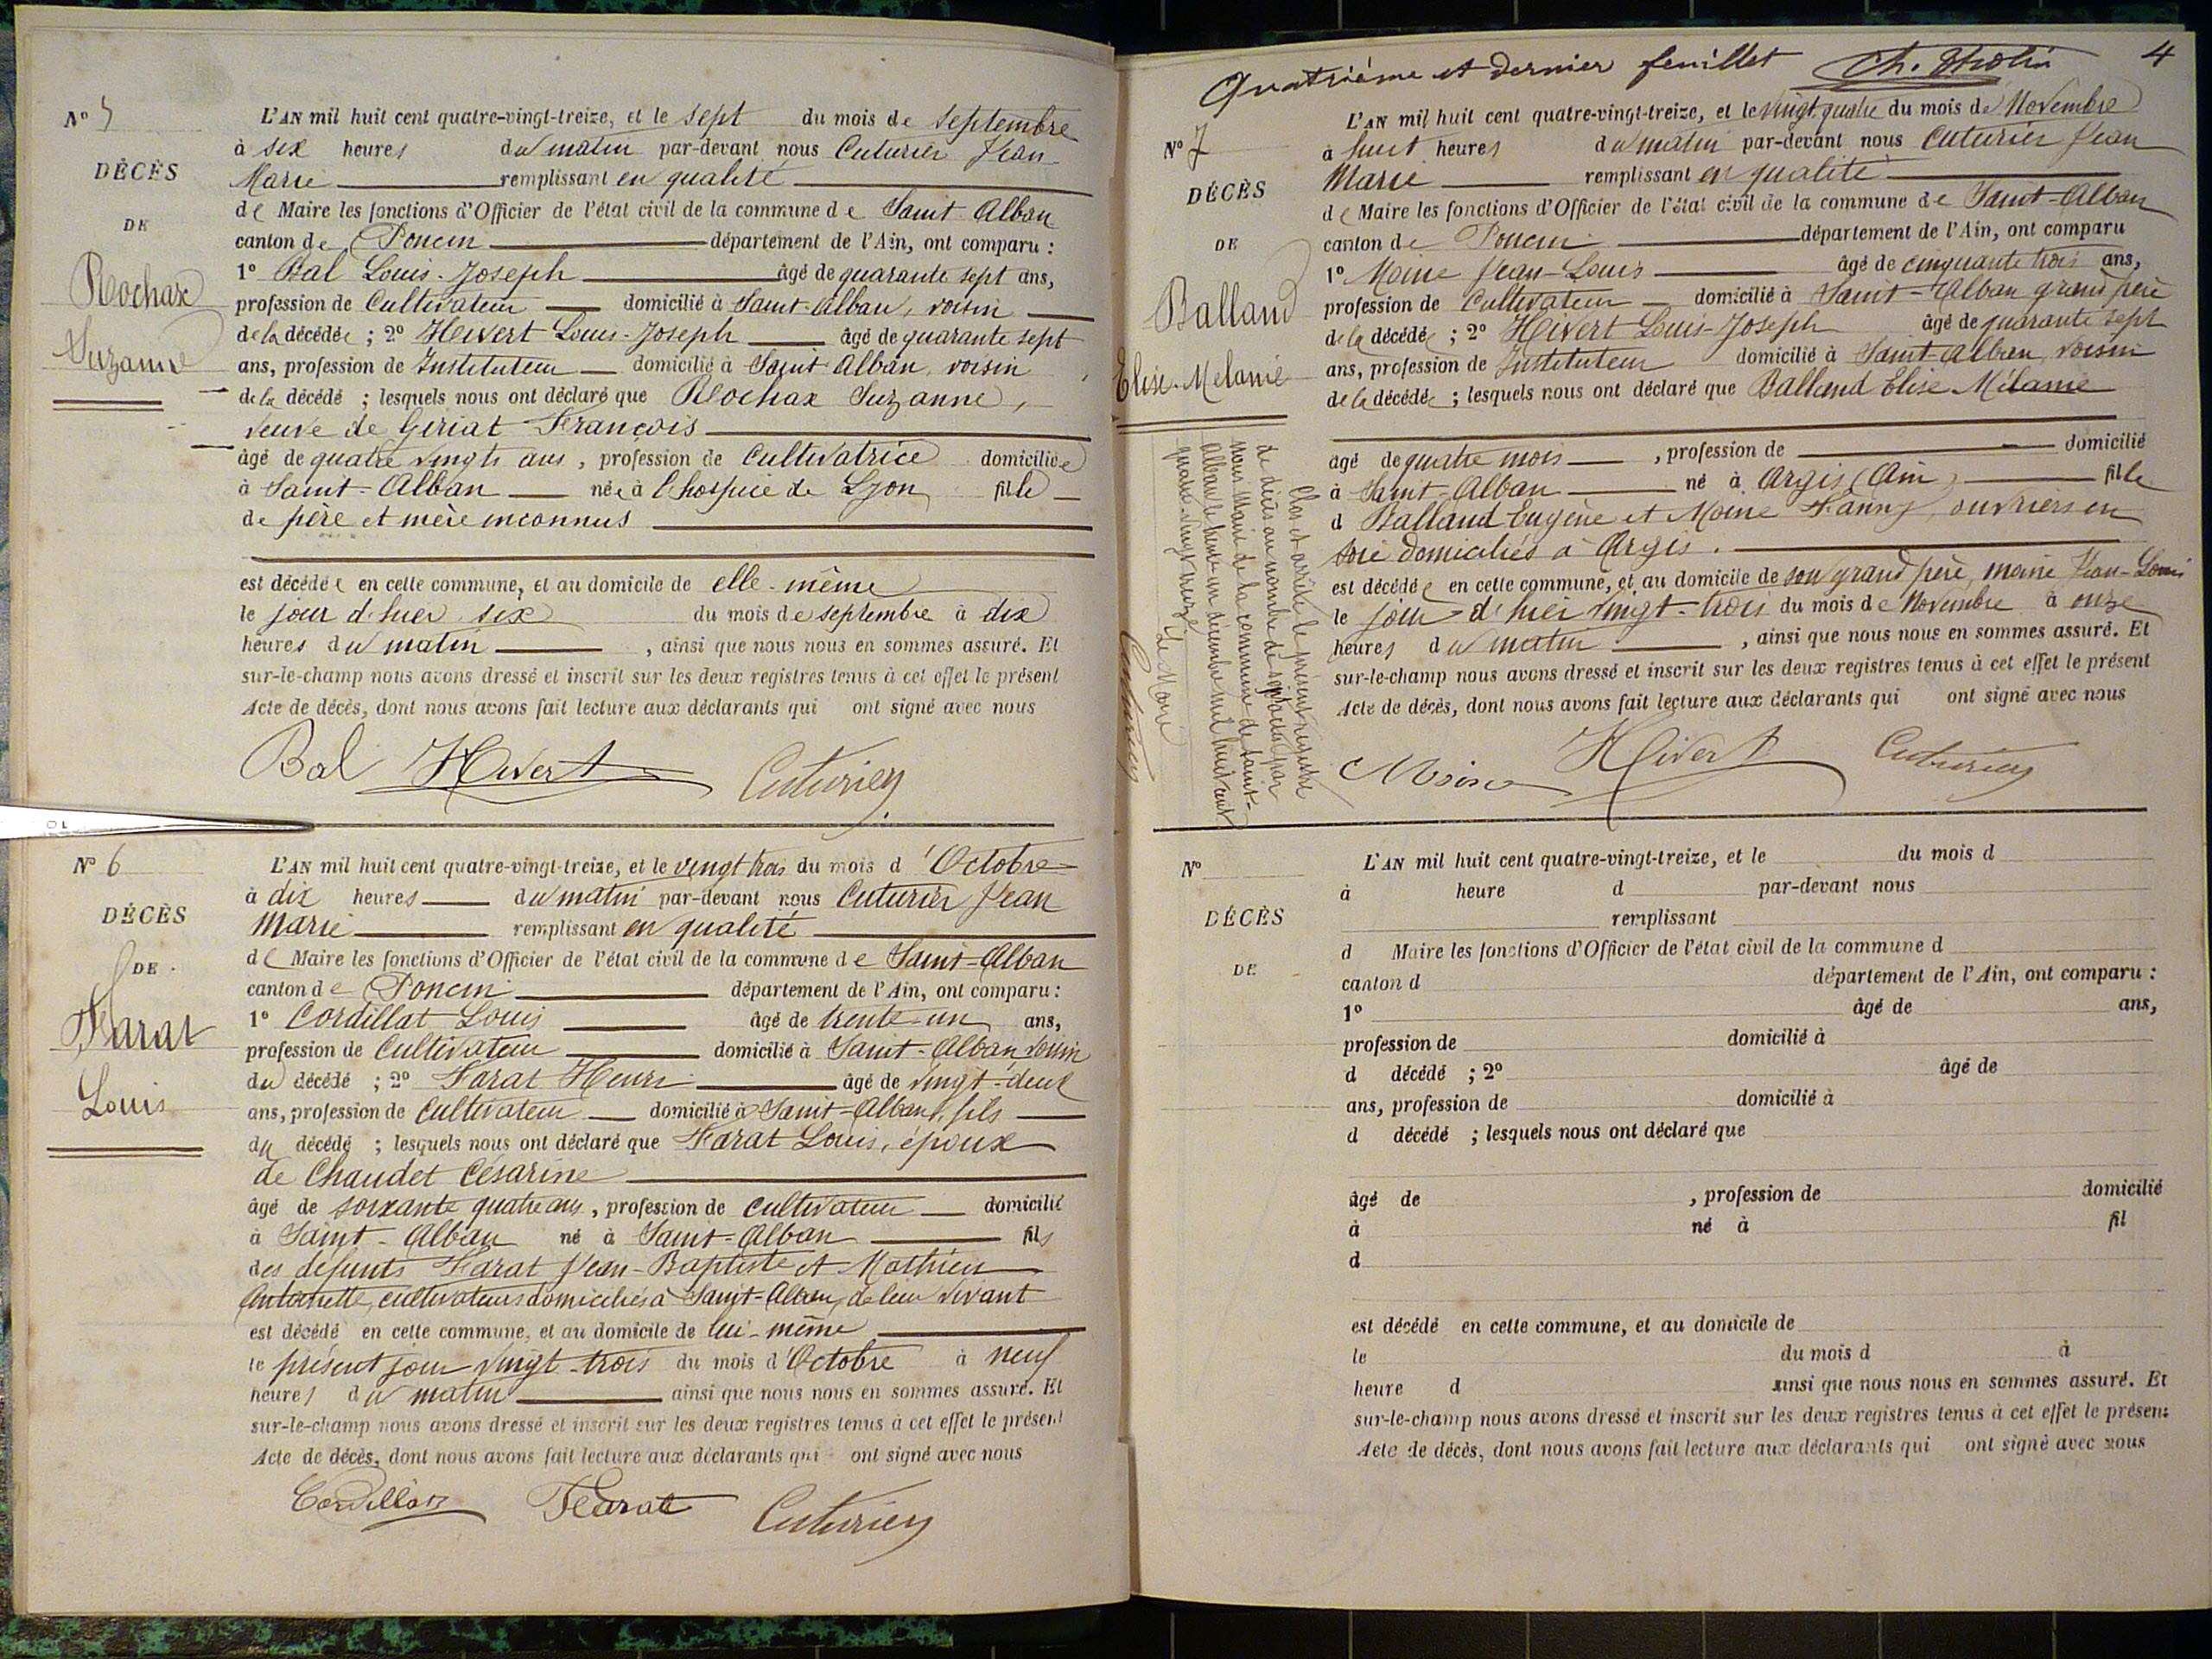 N° 5
DÉCÈS
DE
Rochax
Suzanne
L'AN mil huit cent quatre-vingt-treize, et le sept du mois de septembre
à six heures du matin par-devant nous Cuturier Jean
Marie remplissant en qualité
de Maire les fonctions d'Officier de l'état civil de la commune de Saint-Alban
canton de Poncin département de l'Ain, ont comparu :
1° Bal Louis-Joseph âgé de quarante sept ans,
profession de Cultivateur domicilié à Saint-Alban, voisin
de la décédée ; 2° Heivert Louis-Joseph âgé de quarante sept
ans, profession de Instituteur domicilié à Saint-Alban, voisin
de la décédé ; lesquels nous ont déclaré que Rochax Suzanne,
veuve de Gériat François
âgé de quatre vingts ans, profession de Cultivatrice domiciliée
à Saint-Alban née à l'hospice de Lyon fille
de père et mère inconnus
est décédée en cette commune, et au domicile de elle-même
le jour d'hier six du mois de septembre à dix
heures du matin, ainsi que nous nous en sommes assuré. Et
sur-le-champ nous avons dressé et inscrit sur les deux registres tenus à cet effet le présent
Acte de décès, dont nous avons fait lecture aux déclarants qui ont signé avec nous
Bal Hivert Cuturier
N° 6
DÉCÈS
DE
Farat
Louis
L'AN mil huit cent quatre-vingt-treize, et le vingt trois du mois d'Octobre
à dix heures du matin par-devant nous Cuturier Jean
Marie remplissant en qualité
de Maire les fonctions d'Officier de l'état civil de la commune de Saint-Alban
canton de Poncin département de l'Ain, ont comparu :
1° Cordillat Louis âgé de trente-un ans,
profession de Cultivateur domicilié à Saint-Alban voisin
du décédé ; 2° Farat Henri âgé de vingt-deux
ans, profession de Cultivateur domicilié à Saint-Alban, fils
du décédé ; lesquels nous ont déclaré que Farat Louis, époux
de Chaudet Césarine
âgé de soixante quatre ans, profession de cultivateur domicilié
à Saint-Alban né à Saint-Alban fils
des défunts Farat Jean-Baptiste et Mathieu
Antoinette, cultivateurs domiciliés à Saint-Alban, de leur vivant
est décédé en cette commune, et au domicile de lui-même
le présent jour vingt-trois du mois d'Octobre à neuf
heures du matin ainsi que nous nous en sommes assuré. Et
sur-le-champ nous avons dressé et inscrit sur les deux registres tenus à cet effet le présent
Acte de décès, dont nous avons fait lecture aux déclarants qui ont signé avec nous
Cordillat Farat Cuturier
Quatrième et dernier feuillet 4
N° 7
DÉCÈS
DE
Balland
Elise-Mélanie
L'AN mil huit cent quatre-vingt-treize, et le vingt quatre du mois de Novembre
à huit heures du matin par-devant nous Cuturier Jean
Marie remplissant en qualité
de Maire les fonctions d'Officier de l'état civil de la commune de Saint-Alban
canton de Poncin département de l'Ain, ont comparu
1° Moine Jean-Louis âgé de cinquante trois ans,
profession de Cultivateur domicilié à Saint-Alban grand père
de la décédée ; 2° Hivert Louis-Joseph âgé de quarante sept
ans, profession de Instituteur domicilié à Saint-Alban, voisin
de la décédée ; lesquels nous ont déclaré que Balland Elise Mélanie
âgé de quatre mois, profession de domicilié
à Saint-Alban né à Argis (Ain) fille
d Balland Eugène et Moine Fanny, ouvriers en
soie domiciliés à Argis.
est décédée en cette commune, et au domicile de son grand père, moine Jean-Louis
le jour d'hier vingt-trois du mois de Novembre à onze
heures du matin, ainsi que nous nous en sommes assuré. Et
sur-le-champ nous avons dressé et inscrit sur les deux registres tenus à cet effet le présent
Acte de décès, dont nous avons fait lecture aux déclarants qui ont signé avec nous
Moine Hivert Cuturier
Clos et arrêté le présent registre
de décès au nombre de sept actes par
nous Maire de la commune de Saint-
Alban le trente un décembre mil huit cent
quatre-vingt treize.
Le Maire
Cuturier
N°
DÉCÈS
DE
L'AN mil huit cent quatre-vingt-treize, et le du mois d
à heure d par-devant nous
remplissant
d Maire les fonctions d'Officier de l'état civil de la commune d
canton d département de l'Ain, ont comparu :
1° âgé de ans,
profession de domicilié à
d décédé ; 2° âgé de
ans, profession de domicilié à
d décédé ; lesquels nous ont déclaré que
âgé de , profession de domicilié
à né à fil
d
est décédé en cette commune, et au domicile de
le du mois d à
heure d ainsi que nous nous en sommes assuré. Et
sur-le-champ nous avons dressé et inscrit sur les deux registres tenus à cet effet le présent
Acte de décès, dont nous avons fait lecture aux déclarants qui ont signé avec nous